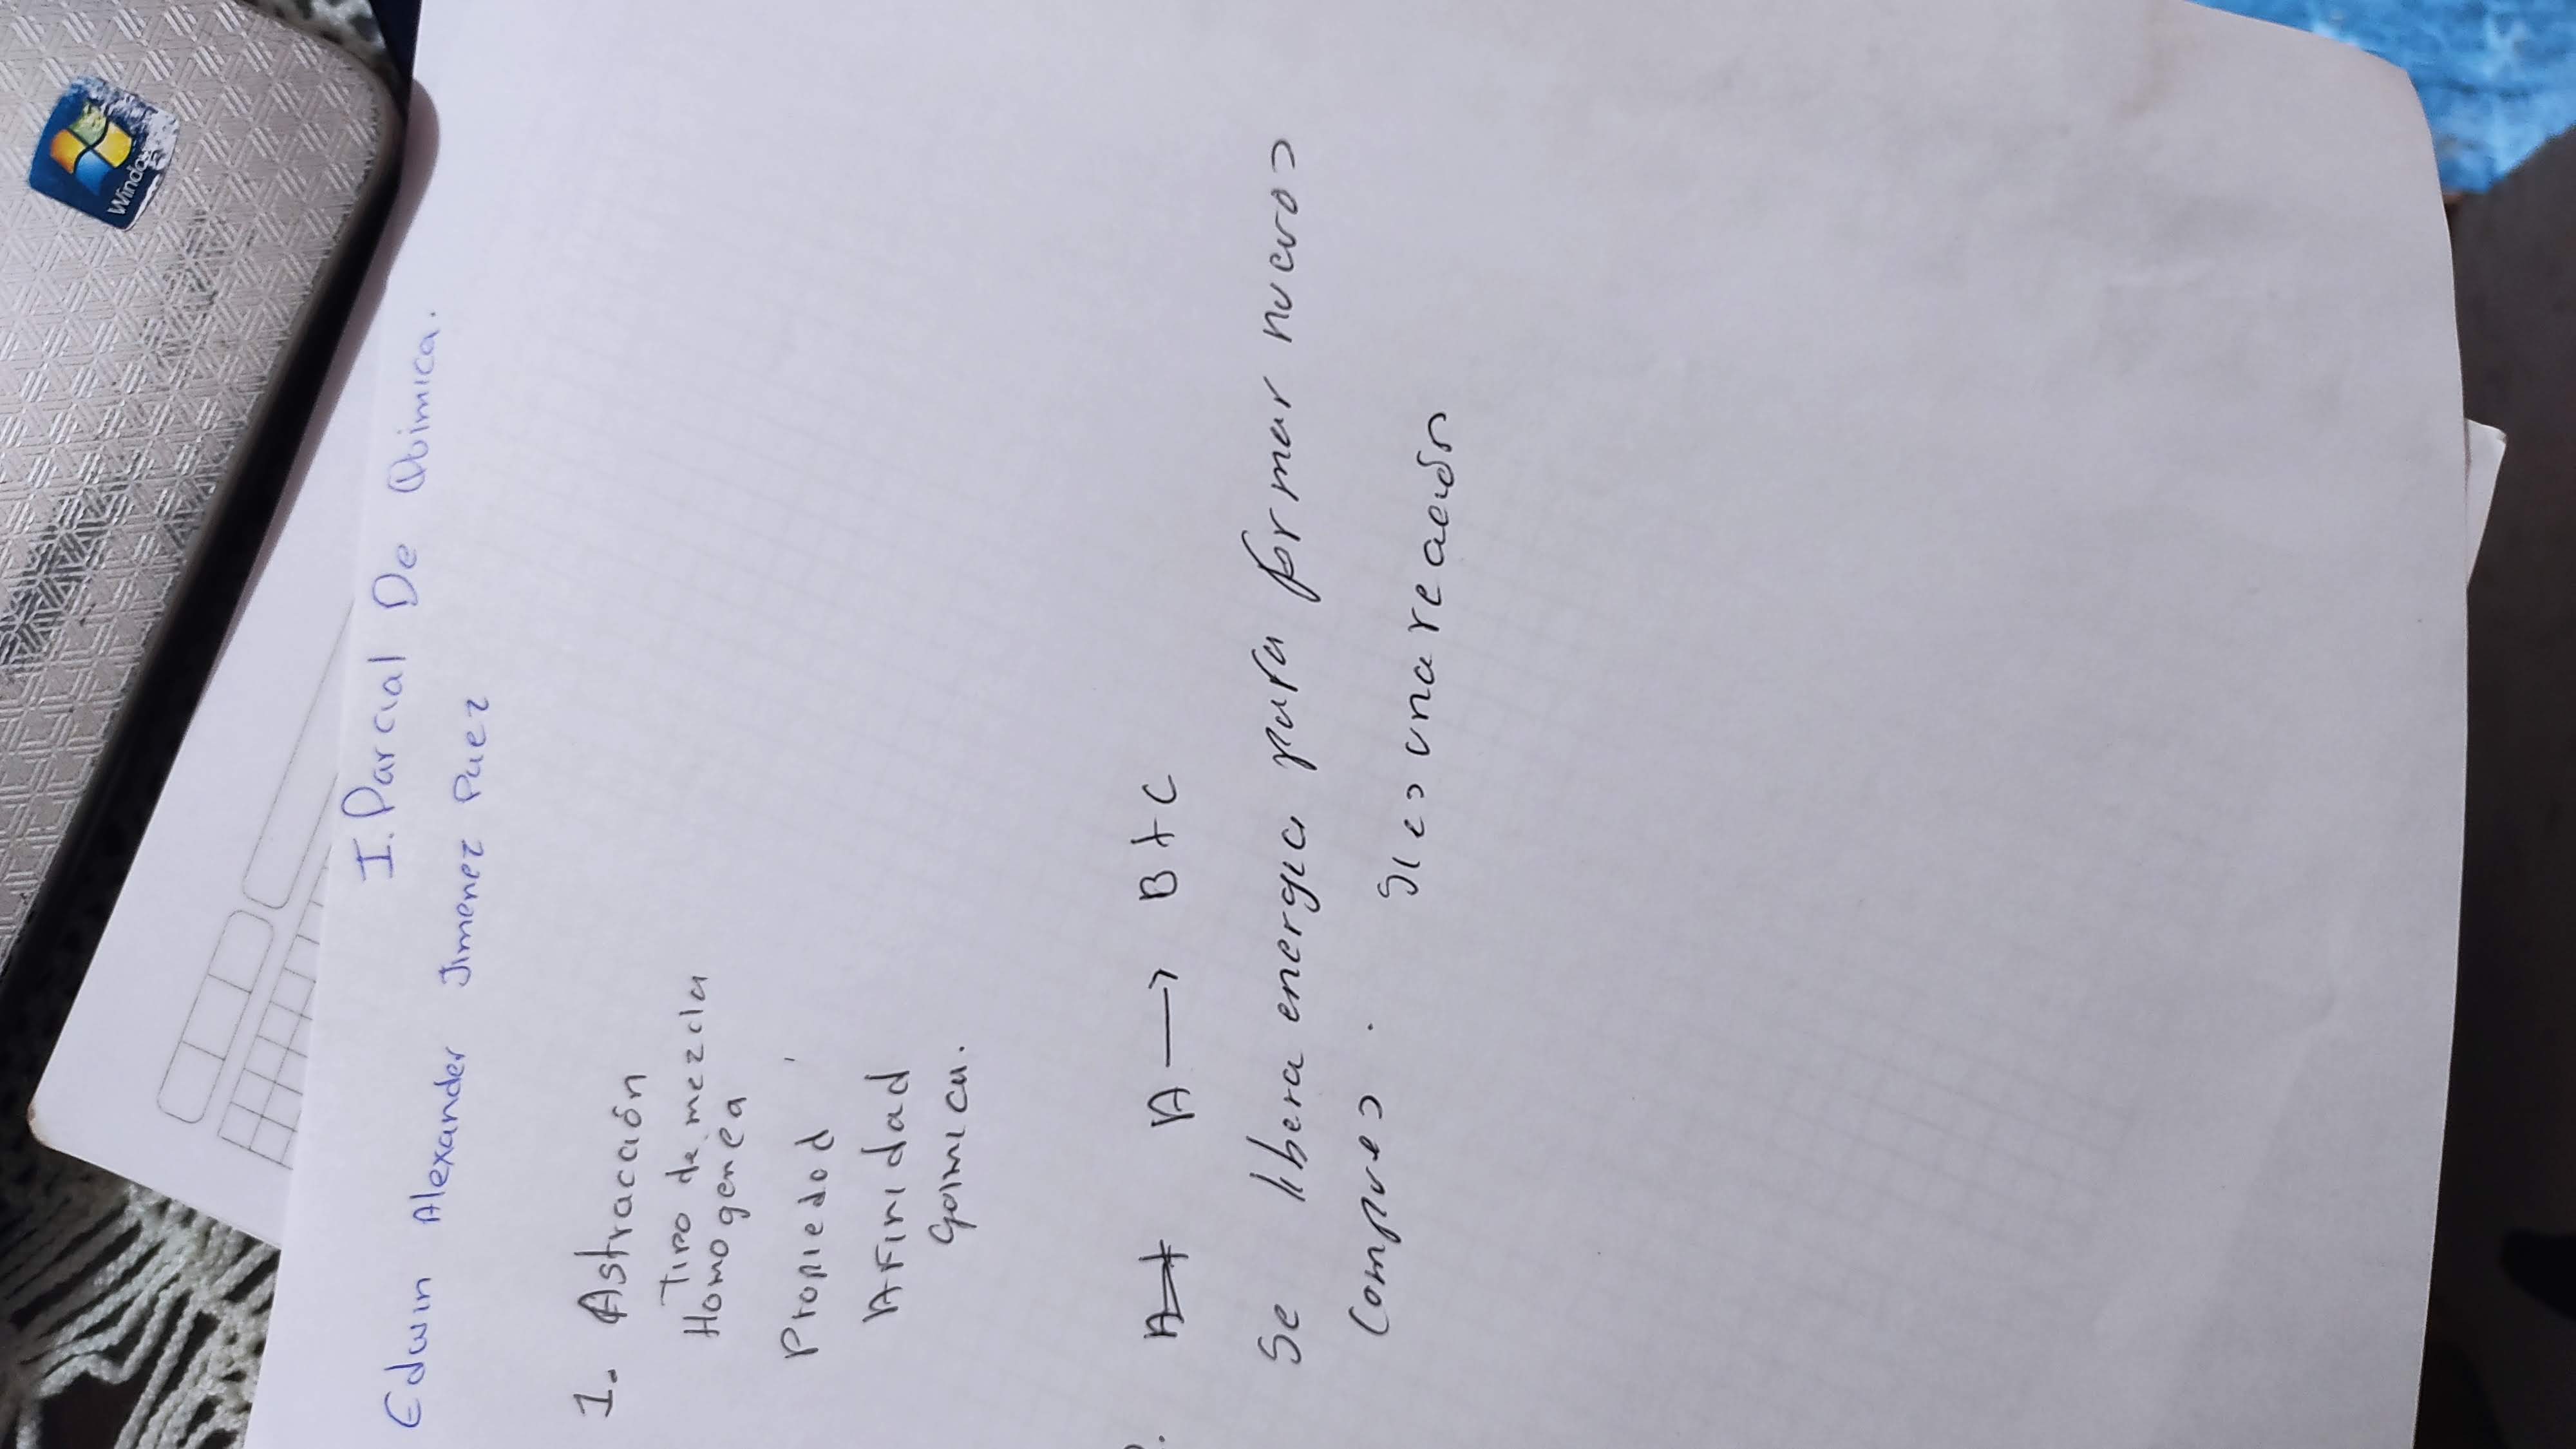 Windows
I. Parcial De Quimica.
Edwin Alexander Jimenez Paez
1. Astracción
Tipo de mezcla
Homogenea
Propiedad
Afinidad
Quimica.
A → B + C
Se libera energia para formar nuevos
compues. Si es una reacción